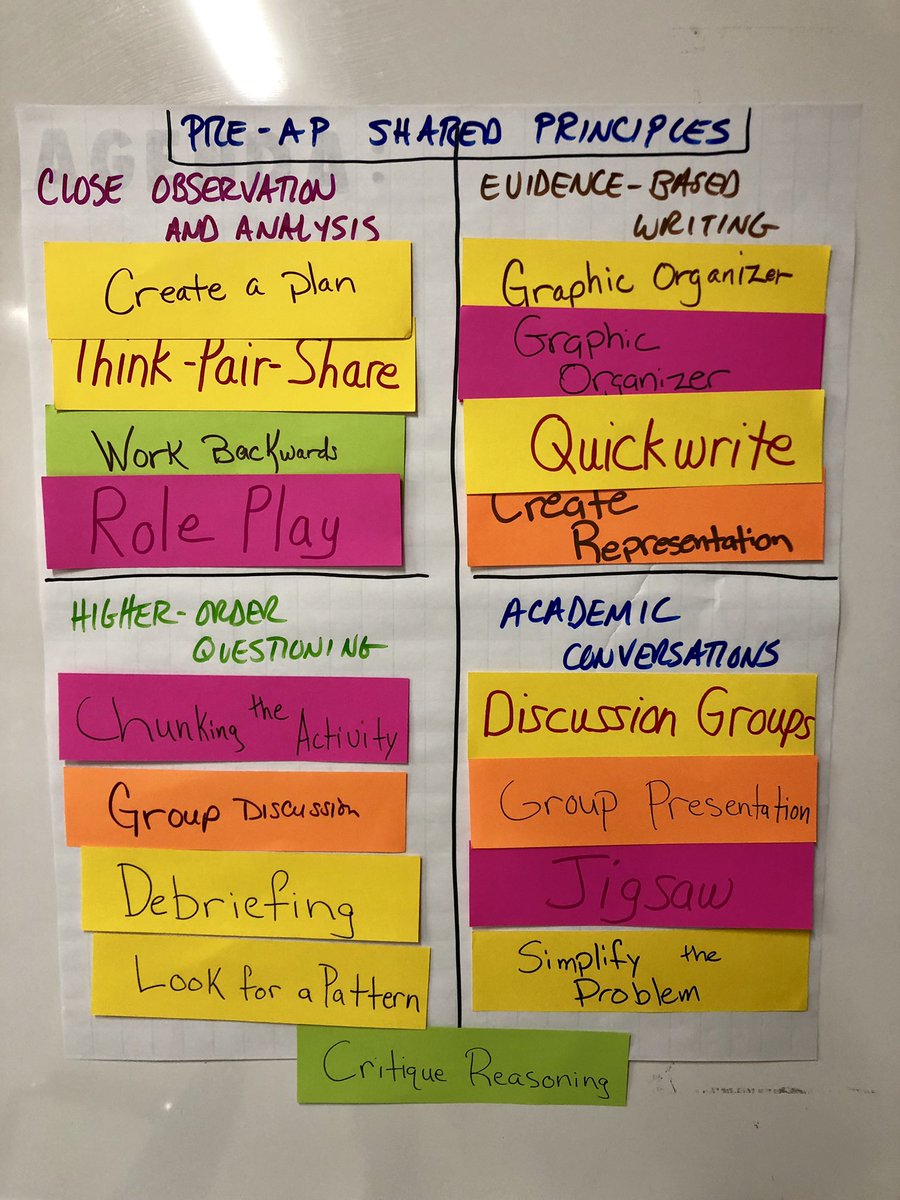 AGENDA:
PRE-AP SHARED PRINCIPLES
CLOSE OBSERVATION
AND ANALYSIS
Create a plan
Think-Pair-Share
Work Backwards
Role Play
EVIDENCE-BASED
WRITING
Graphic Organizer
Graphic
Organizer
Quickwrite
Create
Representation
HIGHER-ORDER
QUESTIONING
Chunking the Activity
Group Discussion
Debriefing
Look for a Pattern
ACADEMIC
CONVERSATIONS
Discussion Groups
Group Presentation
Jigsaw
Simplify the
Problem
Critique Reasoning